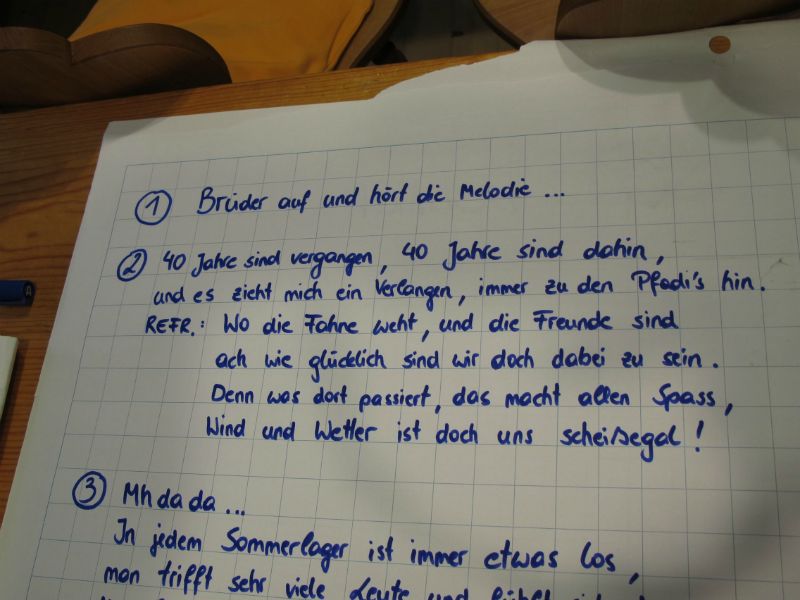 ① Brüder auf und hört die Melodie ...
② 40 Jahre sind vergangen, 40 Jahre sind dahin,
und es zieht mich ein Verlangen, immer zu den Pfadi's hin.
REFR.: Wo die Fahne weht, und die Freunde sind
ach wie glücklich sind wir doch dabei zu sein.
Denn was dort passiert, das macht allen Spass,
Wind und Wetter ist doch uns scheißegal!
③ Mh da da ...
In jedem Sommerlager ist immer etwas los,
man trifft sehr viele Leute und fühlt